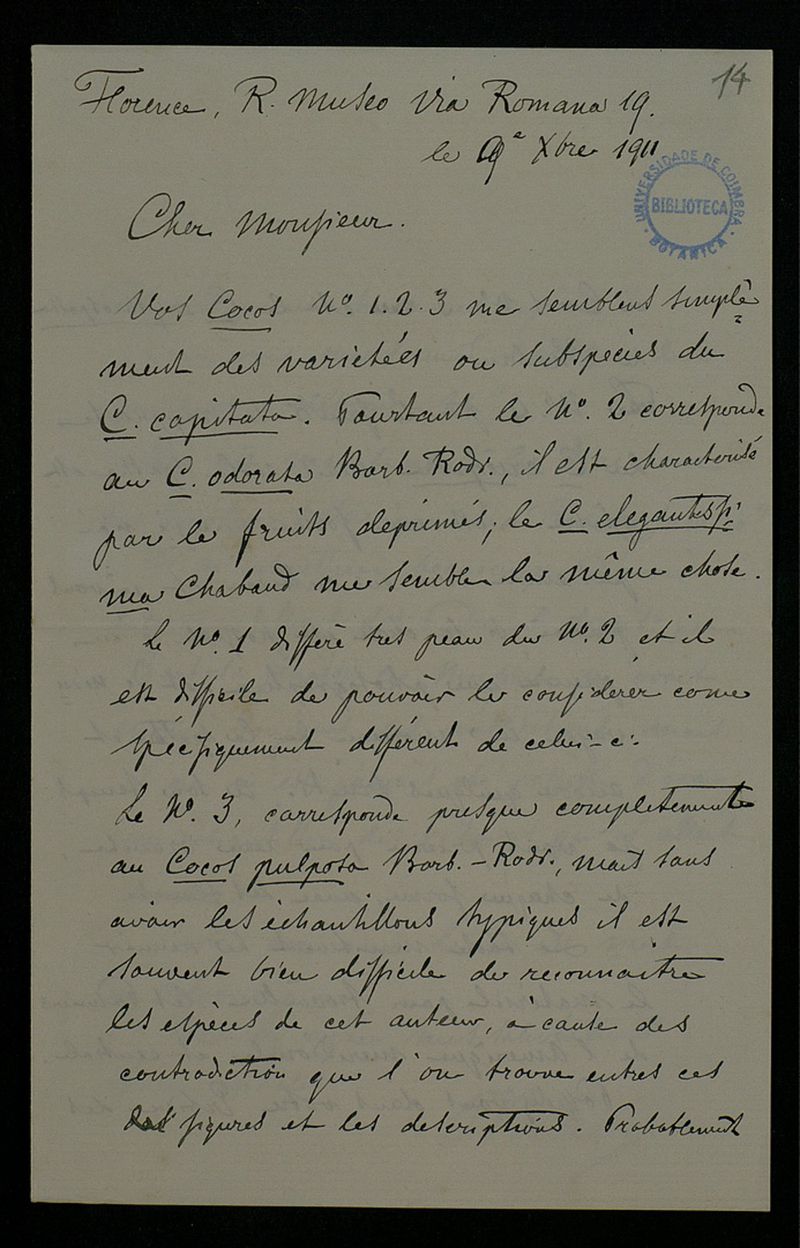 14
Florence, R. Museo Via Romana 19.
le 9e Xbre 1911
UNIVERSIDADE DE COIMBRA
BIBLIOTECA
BOTANICA
Cher Monsieur.
Vos Cocos No. 1. 2. 3 me semblent simple-
ment des varietées ou subspecies du
C. capitata. Pourtant le No. 2 corresponde
au C. odorata Barb. Rodr., il est characterisé
par le fruits deprimés; le C. elegantissi-
ma Chabaud me semble la même chose.
Le No. 1 differe tres peau du No. 2 et il
est difficile de pouvoir le considerer come
specifiquement différent de celui-ci.
Le No. 3, corresponde presque completement
au Cocos pulposa Barb.-Rodr., mais sans
avoir les échantillons typiques il est
souvent bien difficile de reconnaitre
les espèces de cet auteur, à cause des
contradiction que l'on trouve entres ces
figures et les descriptions. Probablement